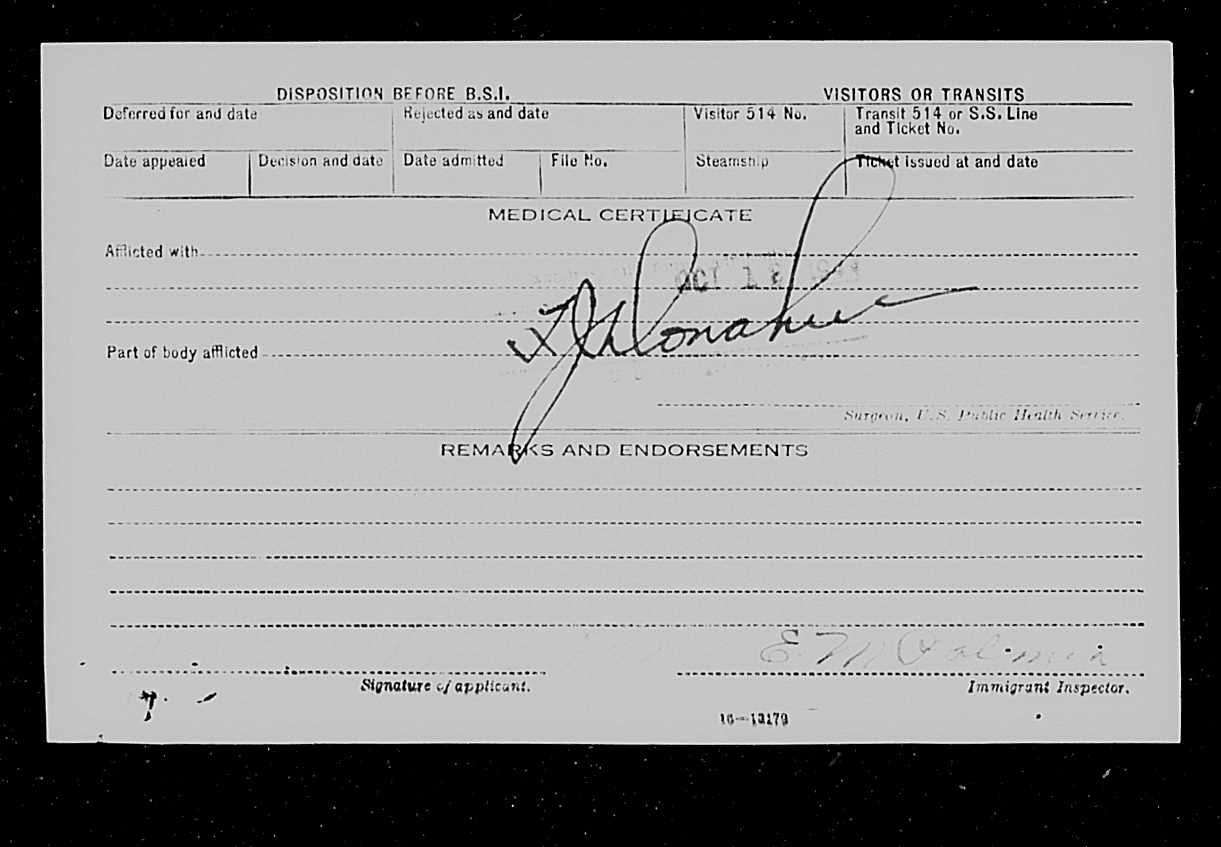 DISPOSITION BEFORE B.S.I. VISITORS OR TRANSITS
Deferred for and date Rejected as and date Visitor 514 No. Transit 514 or S.S. Line and Ticket No.
Date appealed Decision and date Date admitted File No. Steamship Ticket issued at and date
MEDICAL CERTIFICATE
Afflicted with
OCT 1
Donahue
Part of body afflicted
Surgeon, U.S. Public Health Service.
REMARKS AND ENDORSEMENTS
E M
Signature of applicant. Immigrant Inspector.
16—13179